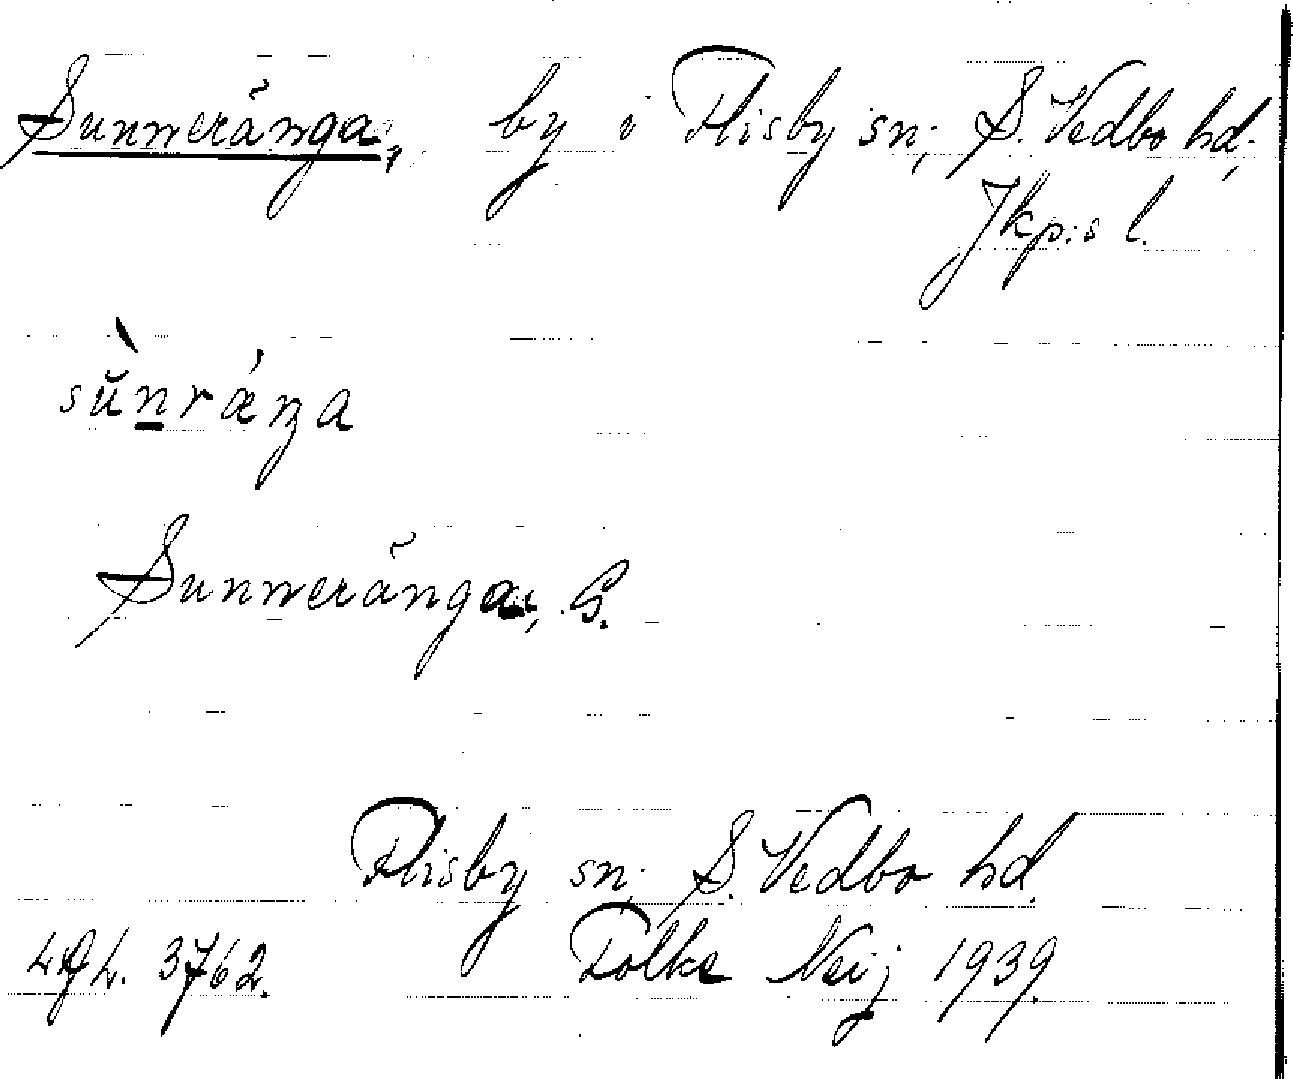 Sunneränga, by i Flisby sn, S. Vedbo hd,
Jkp:s l.
sùnræ´ŋa
Sunneränga, G.
Flisby sn, S. Vedbo hd.
3762. Folke Neij 1939.